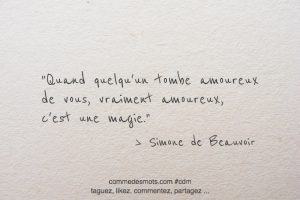 "Quand quelqu'un tombe amoureux
de vous, vraiment amoureux,
c'est une magie."
> Simone de Beauvoir
commedesmots.com #cdm
taguez, likez, commentez, partagez ...